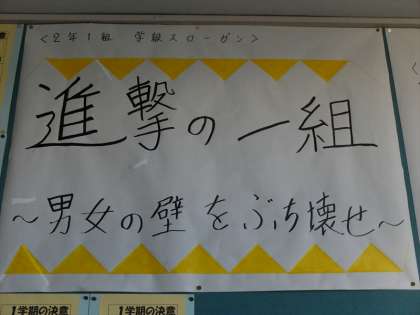 <2年1組 学級スローガン>
進撃の一組
~男女の壁をぶち壊せ~
1学期の決意
1学期の決意